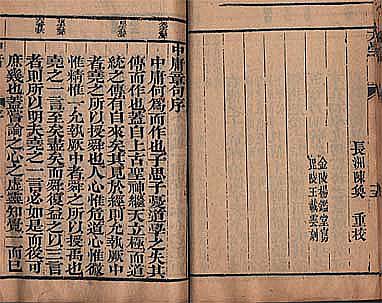 長洲陳奐 重校
金陵楊鑑堂寫
毘陵王載雲刻
中庸章句序
中庸何為而作也子思子憂道學之失其
傳而作也蓋自上古聖神繼天立極而道
統之傳有自來矣其見於經則允執厥中
者堯之所以授舜也人心惟危道心惟微
惟精惟一允執厥中者舜之所以授禹也
堯之一言至矣盡矣而舜復益之以三言
者則所以明夫堯之一言必如是而後可
庶幾也蓋嘗論之心之虛靈知覺一而已